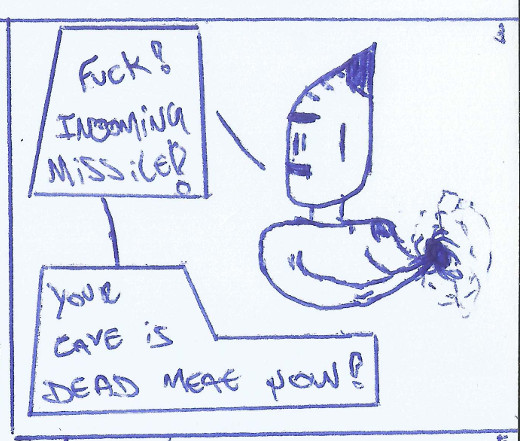 FUCK!
INCOMING
MISSILE!
YOUR
CAVE IS
DEAD MEAT NOW!